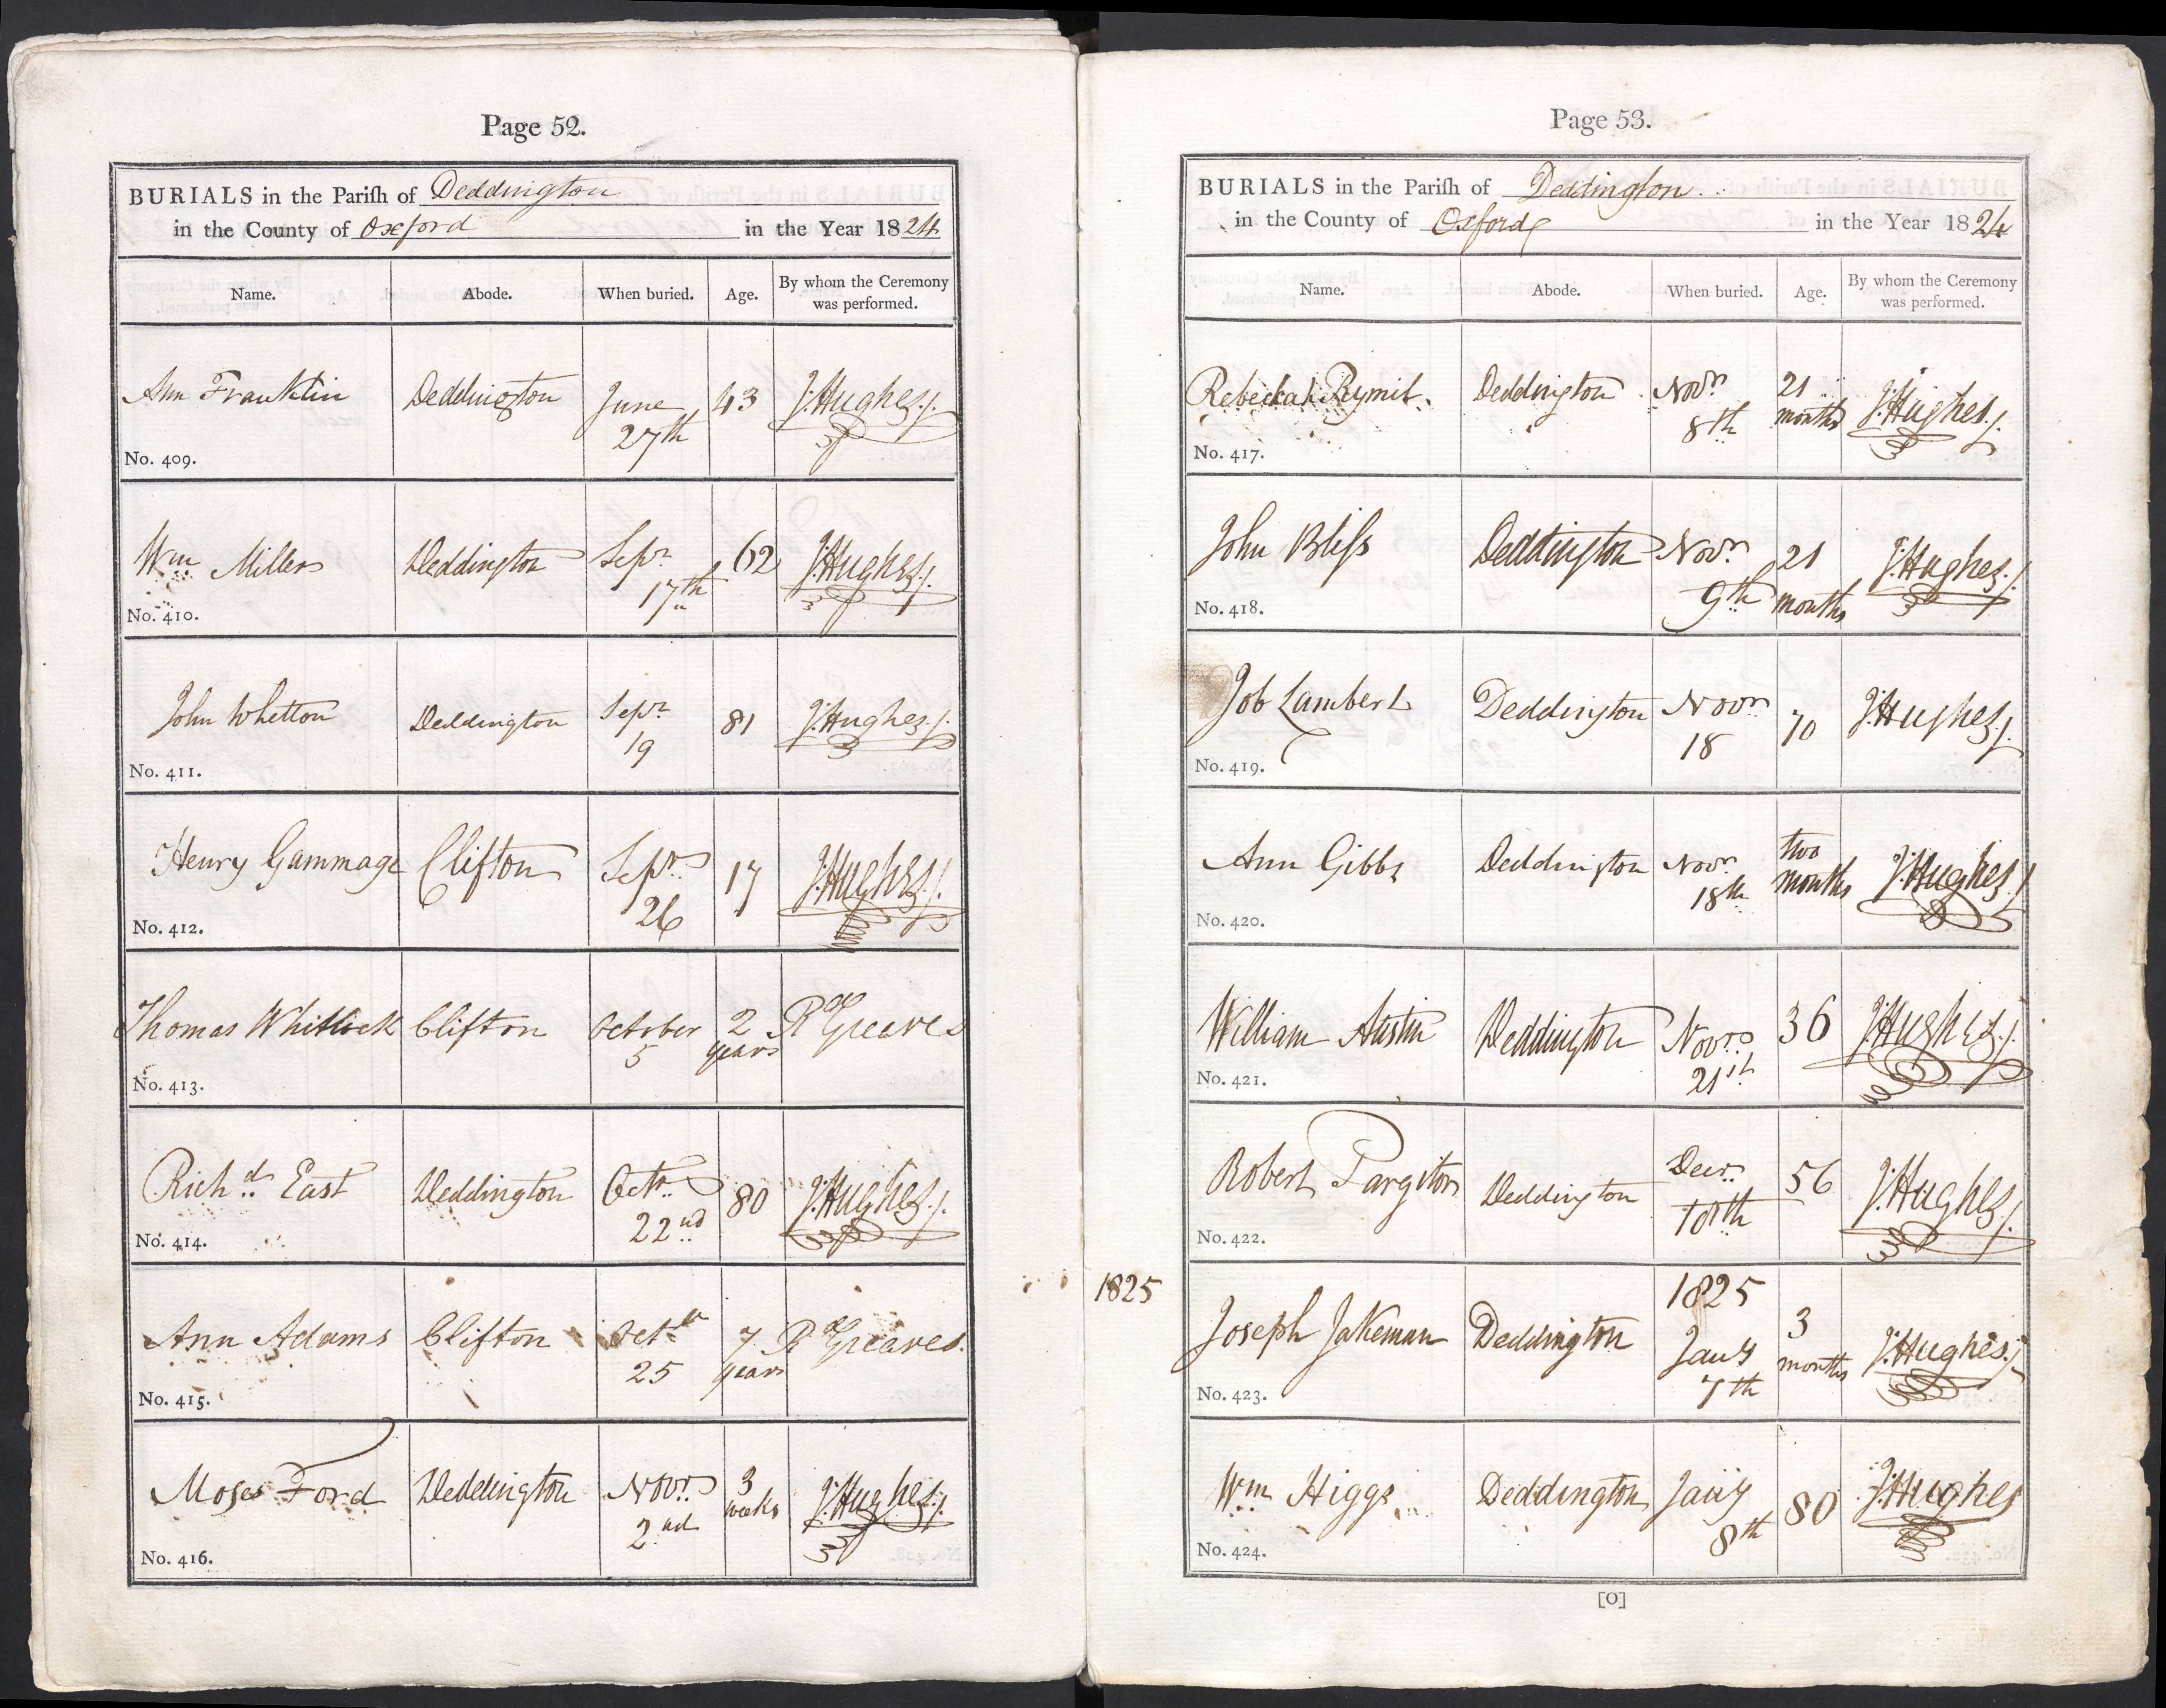 Page 52.
BURIALS in the Pariſh of Deddington
in the County of Oxford in the Year 1824
Name. Abode. When buried. Age. By whom the Ceremony was performed.
Ann Franklin Deddington June 27th 43 J. Hughes
No. 409.
Wm Miller Deddington Sepr 17th 62 J. Hughes
No. 410.
John Whetton Deddington Sepr 19 81 J. Hughes
No. 411.
Henry Gammage Clifton Sepr 26 17 J. Hughes
No. 412.
Thomas Whitlock Clifton October 5 2 years R Greaves
No. 413.
Richd East Deddington Octr 22nd 80 J. Hughes
No. 414.
Ann Adams Clifton Octr 25 7 years R Greaves.
No. 415.
Moses Ford Deddington Novr 2nd 3 weeks J. Hughes
No. 416.
Page 53.
BURIALS in the Pariſh of Deddington
in the County of Oxford in the Year 1824
Name. Abode. When buried. Age. By whom the Ceremony was performed.
Rebeckah Deddington Novr 8th 21 months J. Hughes
No. 417.
John Bliſs Deddington Novr 9th 21 months J. Hughes
No. 418.
Job Lambert Deddington Novr 18 70 J. Hughes
No. 419.
Ann Gibbs Deddington Novr 18th two months J. Hughes
No. 420.
William Austin Deddington Novr 21st 36 J. Hughes
No. 421.
Robert Pargiter Deddington Decr 56 J. Hughes
No. 422.
1825
Joseph Jakeman Deddington 1825 Jany 7th 3 months J. Hughes
No. 423.
Wm Higgs Deddington Jany 8th 80 J. Hughes
No. 424.
[O]